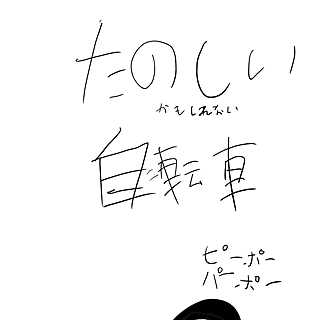 たのしい
かもしれない
自転車
ピーポー
パーポー